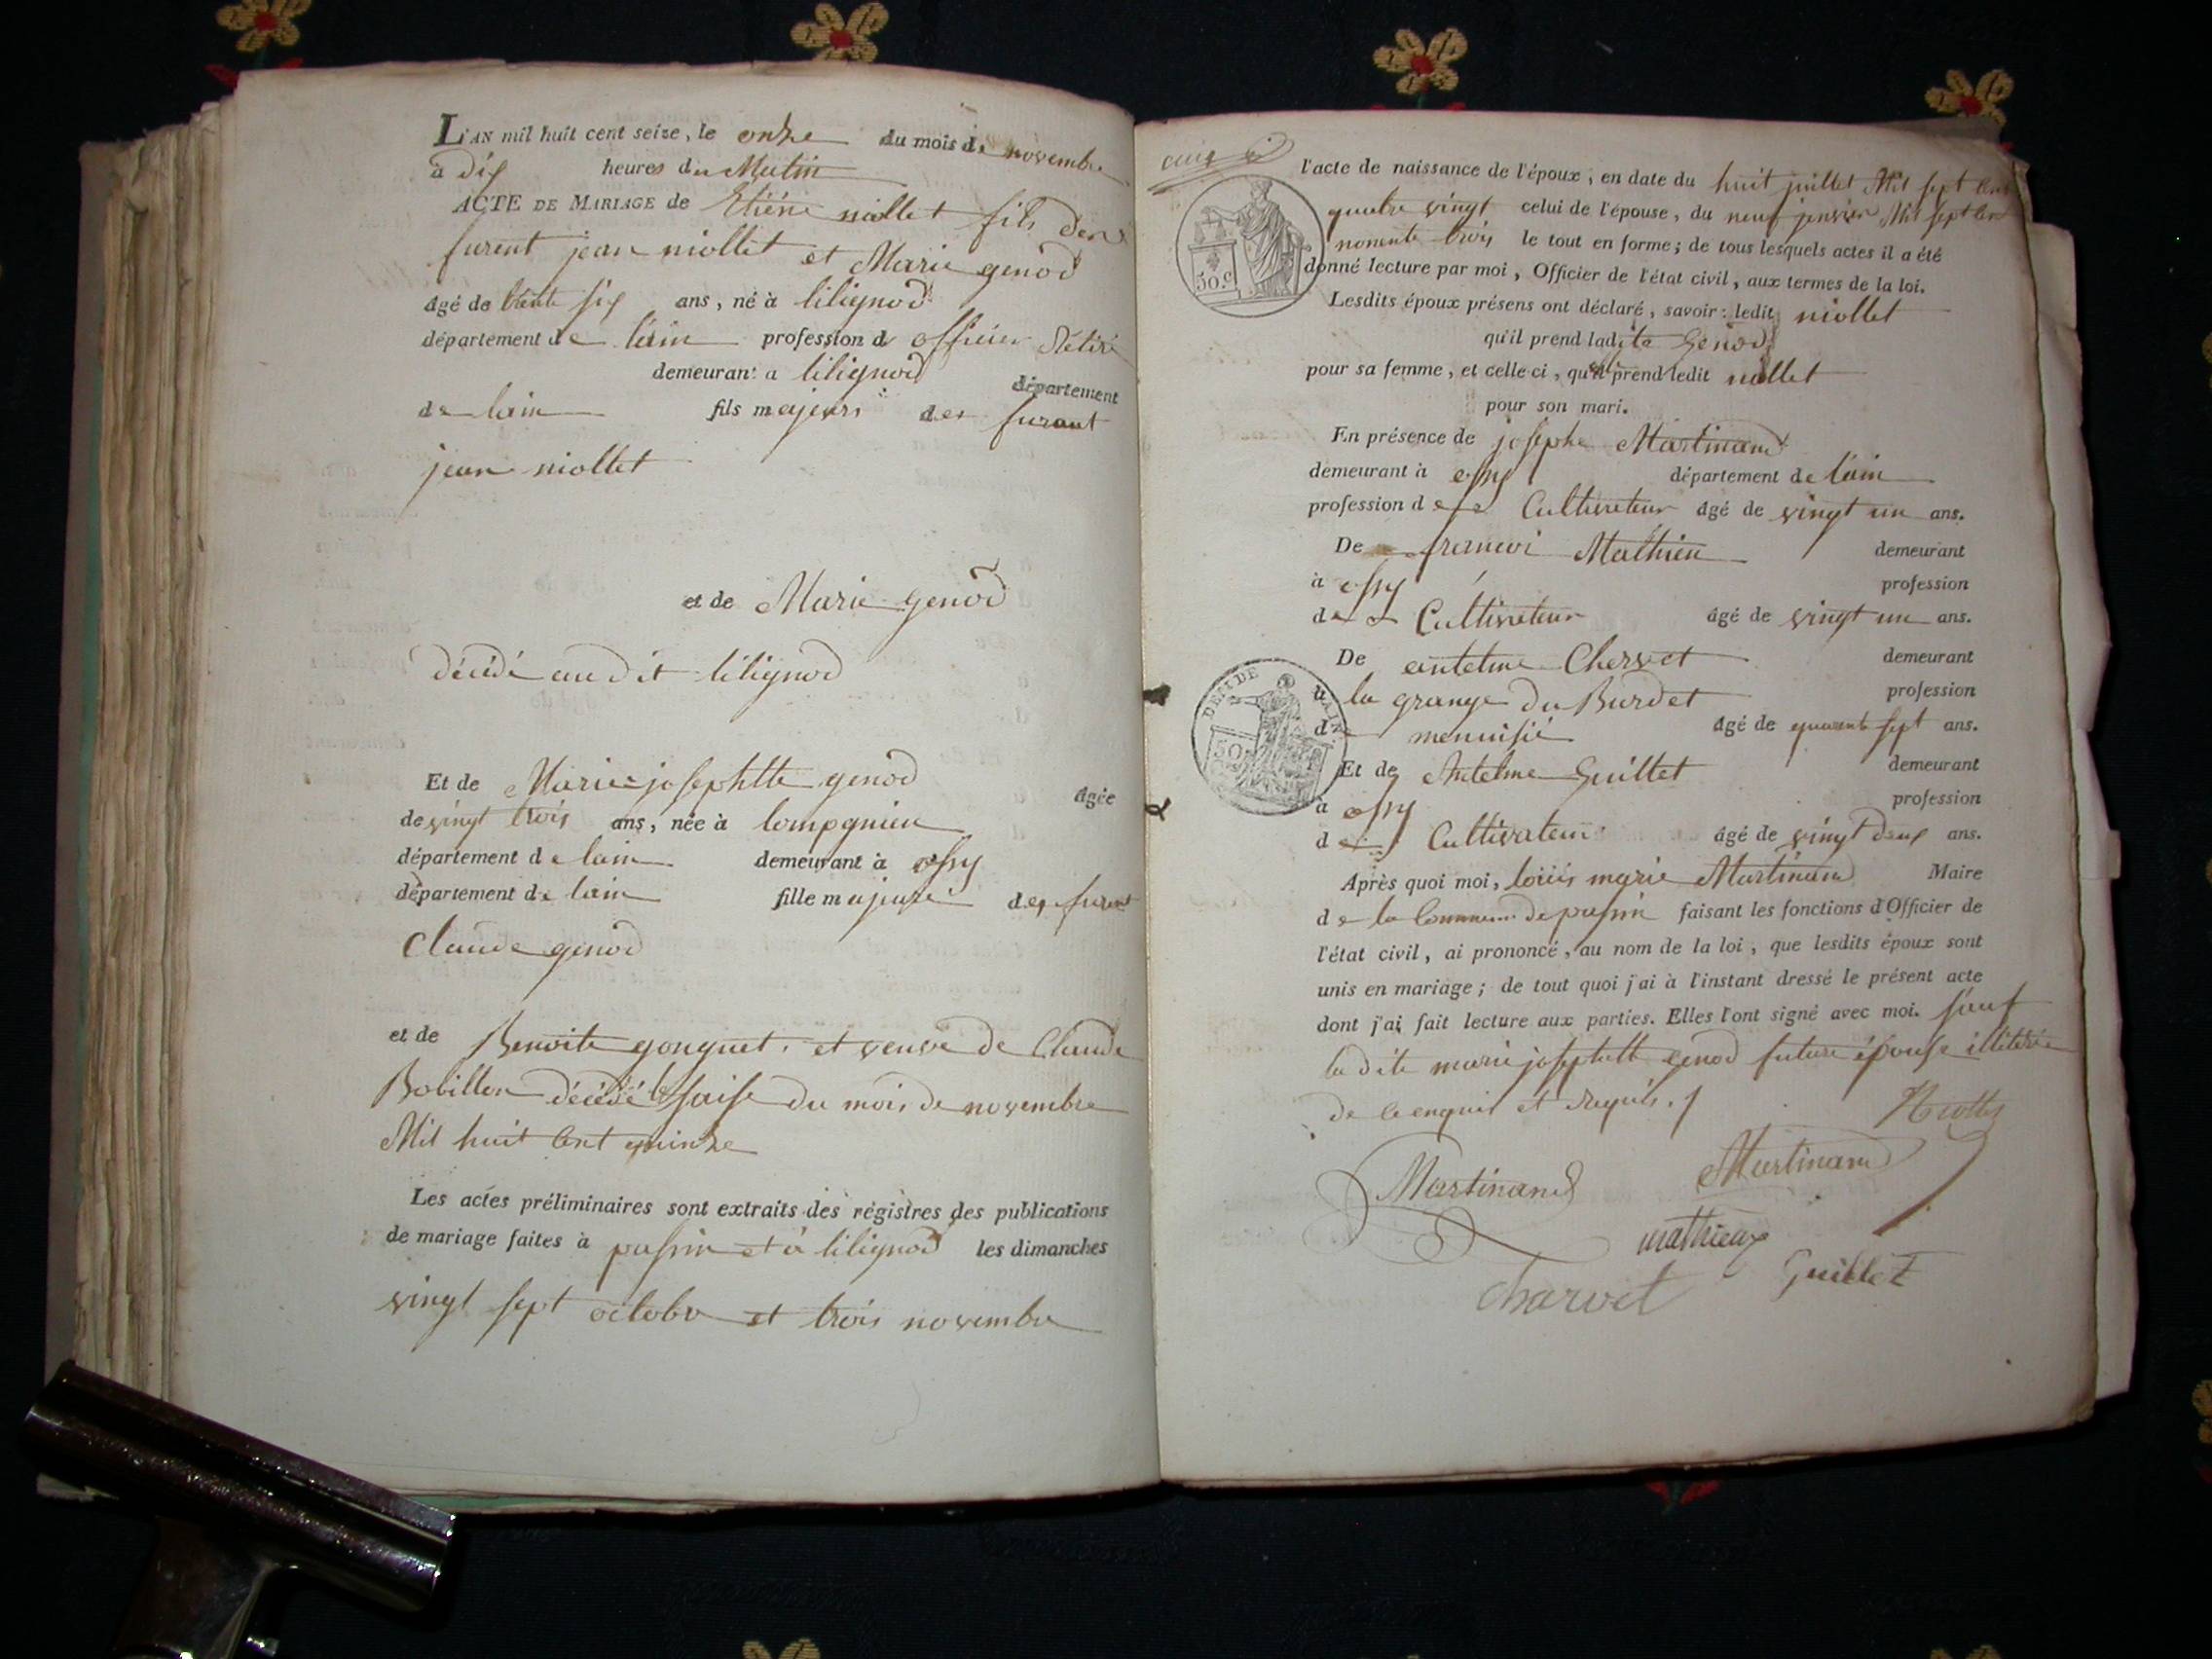 L'AN mil huit cent seize, le onze du mois de novembre
à dix heures du Matin
ACTE DE MARIAGE de Etiéne niollet fils des
furent jean niollet et Marie genod
âgé de trente six ans, né à lilignod
département de lain profession d officier Rétiré
demeurant a lilignod département
de lain fils majeurs des furant
jean niollet
et de Marie genod
décédé au dit lilignod
Et de Marie josephtte genod âgée
de vingt trois ans, née à lompgnieu
département de lain demeurant à ossy
département de lain fille majeure des furent
Claude genod
et de Benoite gonguet, et veuve de Claude
Bobillon décédé le saise du mois de novembre
Mil huit Cent quinze
Les actes préliminaires sont extraits des régistres des publications
de mariage faites à passin et à lilignod les dimanches
vingt sept octobre et trois novembre
l'acte de naissance de l'époux, en date du huit juillet Mil sept Cent
50.c
quatre vingt celui de l'épouse, du neuf jenvier Mil sept Cent
nonente trois le tout en forme; de tous lesquels actes il a été
donné lecture par moi, Officier de l'état civil, aux termes de la loi.
Lesdits époux présens ont déclaré, savoir: ledit niollet
qu'il prend ladite Genod
pour sa femme, et celle-ci, qu'elle prend ledit niollet
pour son mari.
En présence de josephe Martinand
demeurant à ossy département de lain
profession de Cultivateur âgé de vingt un ans.
De francoi Mathieu demeurant
à ossy profession
de Cultivateur âgé de vingt un ans.
De antelme Chervet demeurant
DEPT DE L'AIN
50
à la grange du Burdet profession
de menuisié âgé de quarente sept ans.
Et de Antelme Guillet demeurant
à ossy profession
de Cultivateur âgé de vingt deux ans.
Après quoi moi, loiüis marie Martinand Maire
de la Commune de passin faisant les fonctions d'Officier de
l'état civil, ai prononcé, au nom de la loi, que lesdits époux sont
unis en mariage; de tout quoi j'ai à l'instant dressé le présent acte
dont j'ai fait lecture aux parties. Elles l'ont signé avec moi. sauf
la dite marie josephett genod future épouse illiterée
de ce enquis et Requis.
Martinand Martinand
mathieu
Charvet Guillet